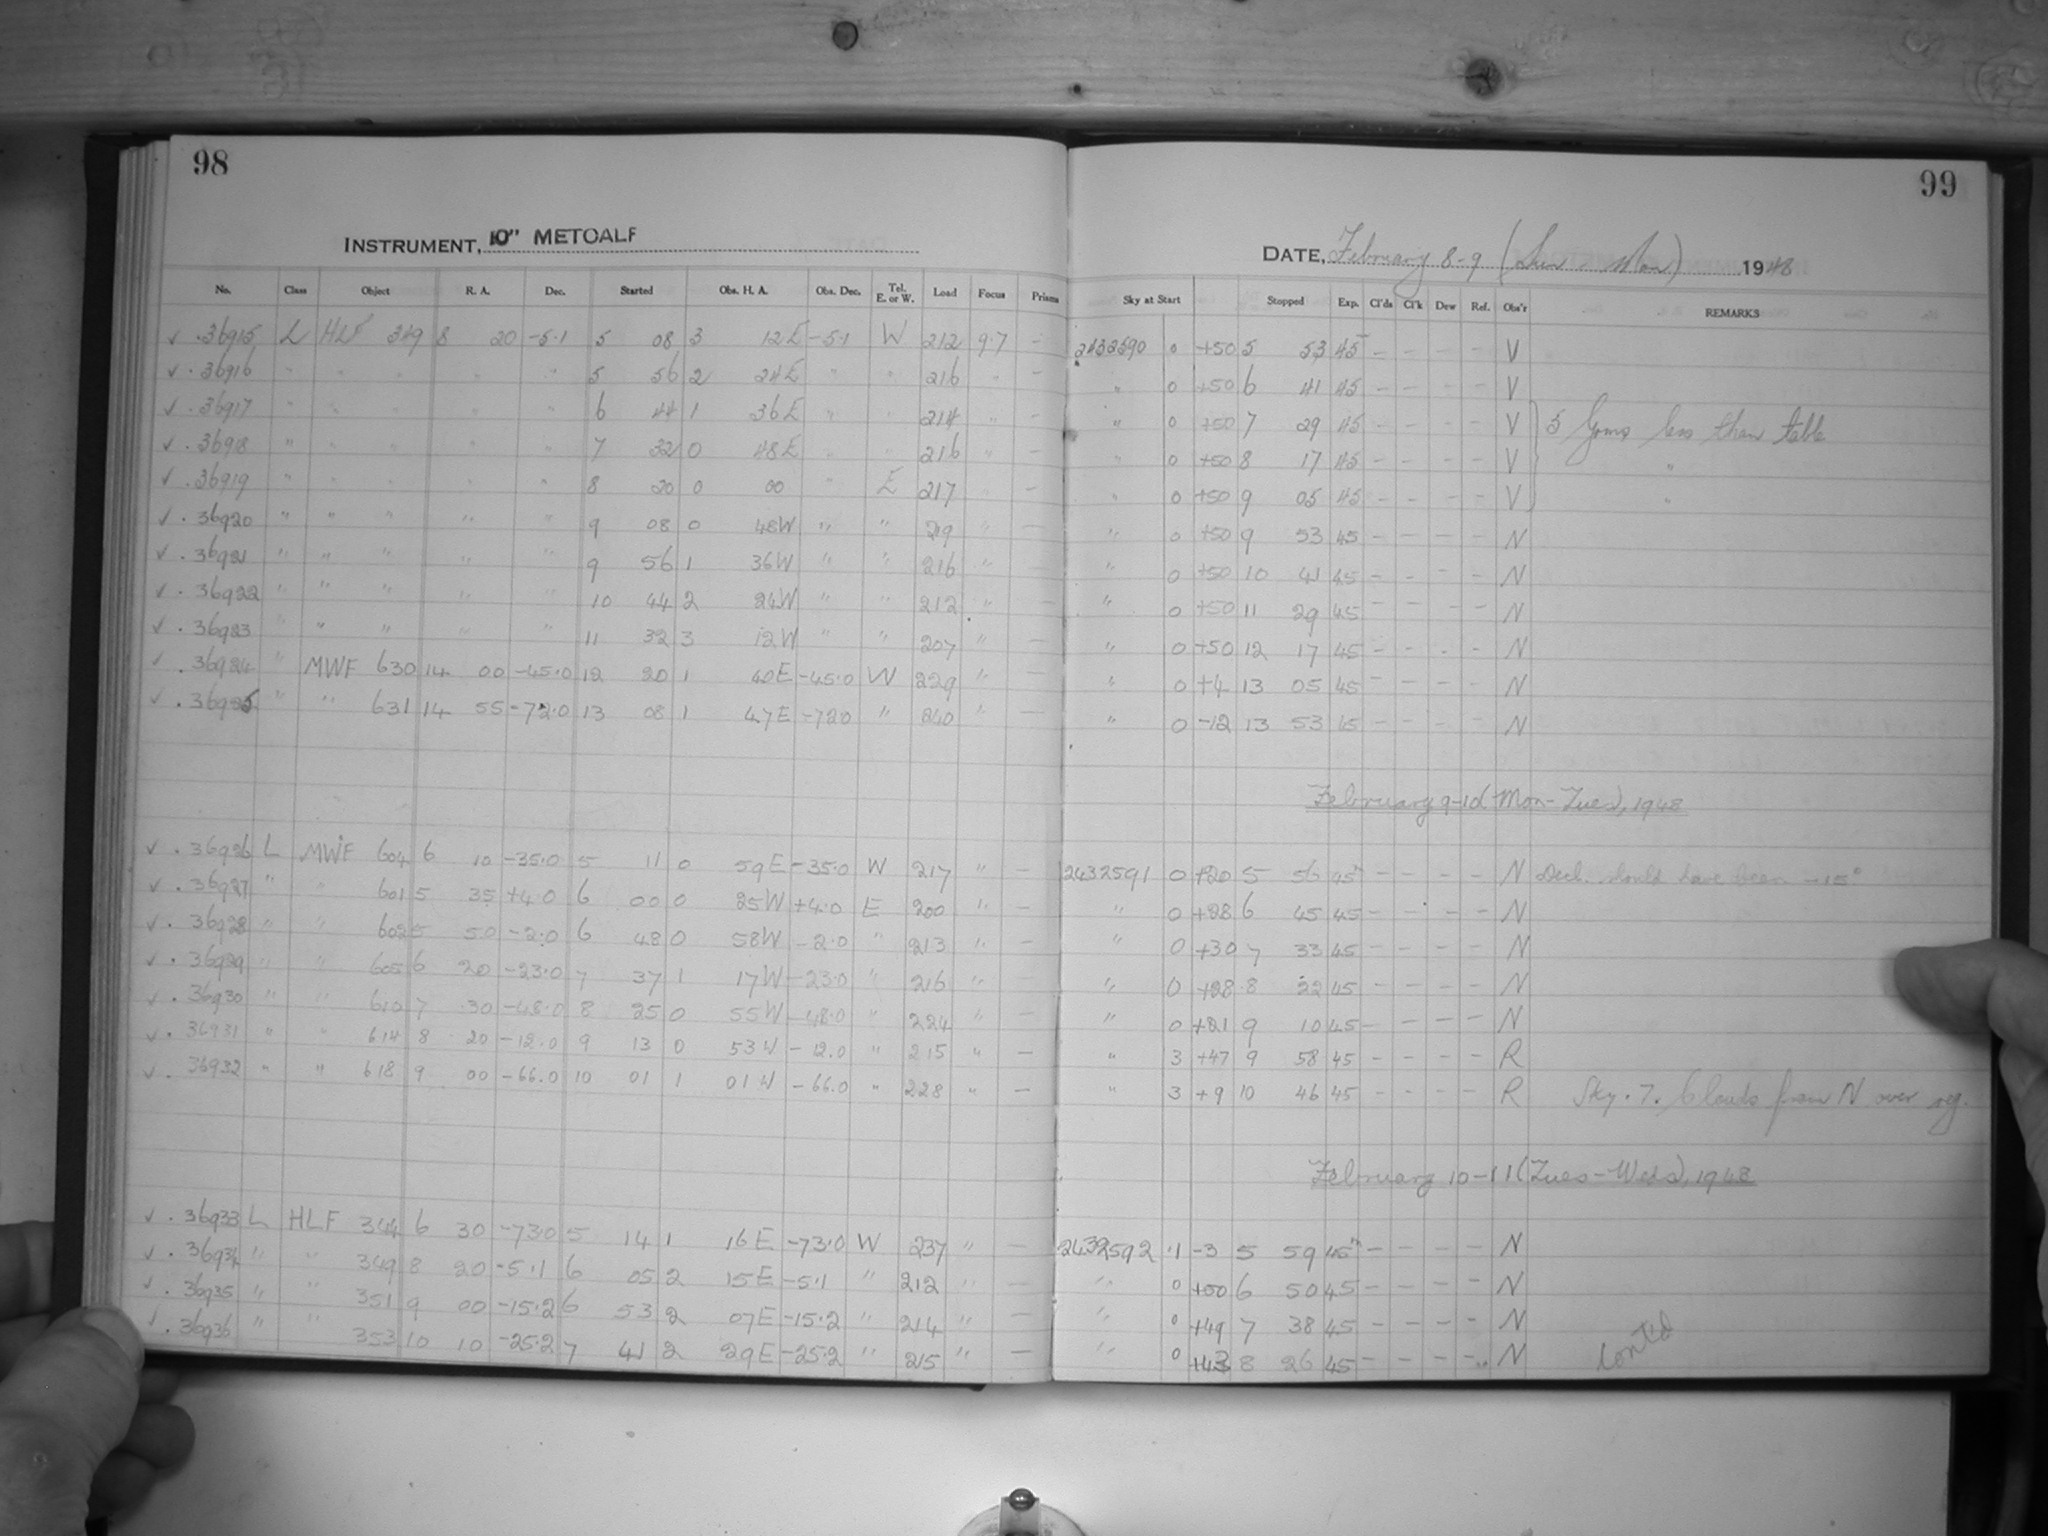 98
INSTRUMENT, 10" METCALF
No. Class Object R. A. Dec. Started Obs. H. A. Obs. Dec. Tel. E. or W. Load Focus Prisms
√ . 36915 L HLF 349 8 20 -5.1 5 08 3 12E -5.1 W 212 9.7 -
√ . 36916 " " " " " 5 56 2 24E " " 216 " -
√ . 36917 " " " " " 6 44 1 36E " " 214 " -
√ . 36918 " " " " " 7 32 0 48E " " 216 " -
√ . 36919 " " " " " 8 20 0 00 " E 217 " -
√ . 36920 " " " " " 9 08 0 48W " " 219 " -
√ . 36921 " " " " " 9 56 1 36W " " 216 " -
√ . 36922 " " " " " 10 44 2 24W " " 212 " -
√ . 36923 " " " " " 11 32 3 12W " " 207 " -
√ . 36924 " MWF 630 14 00 -45.0 12 20 1 40E -45.0 W 229 " -
√ . 36925 " " 631 14 55 -72.0 13 08 1 47E -72.0 " 240 " -
√ . 36926 L MWF 604 6 10 -35.0 5 11 0 59E -35.0 W 217 " -
√ . 36927 " " 601 5 35 +4.0 6 00 0 25W +4.0 E 200 " -
√ . 36928 " " 602 5 50 -2.0 6 48 0 58W -2.0 " 213 " -
√ . 36929 " " 605 6 20 -23.0 7 37 1 17W -23.0 " 216 " -
√ . 36930 " " 610 7 30 -48.0 8 25 0 55W -48.0 " 224 " -
√ . 36931 " " 614 8 20 -12.0 9 13 0 53W -12.0 " 215 " -
√ . 36932 " " 618 9 00 -66.0 10 01 1 01W -66.0 " 228 " -
√ . 36933 L HLF 344 6 30 -73.0 5 14 1 16E -73.0 W 237 " -
√ . 36934 " " 349 8 20 -5.1 6 05 2 15E -5.1 " 212 " -
√ . 36935 " " 351 9 00 -15.2 6 53 2 07E -15.2 " 214 " -
√ . 36936 " " 353 10 10 -25.2 7 41 2 29E -25.2 " 215 " -
99
DATE, February 8-9 (Sun - Mon) 1948
Sky at Start Stopped Exp. Cl'ds Cl'k Dew Ref. Obs'r REMARKS
2432590 0 +50 5 53 45 - - - - V
" 0 +50 6 41 45 - - - - V
" 0 +50 7 29 45 - - - - V 5 Gms less than table
" 0 +50 8 17 45 - - - - V "
" 0 +50 9 05 45 - - - - V "
" 0 +50 9 53 45 - - - - N
" 0 +50 10 41 45 - - - - N
" 0 +50 11 29 45 - - - - N
" 0 +50 12 17 45 - - - - N
" 0 +4 13 05 45 - - - - N
" 0 -12 13 53 45 - - - - N
February 9-10 (Mon-Tues), 1948
2432591 0 +20 5 56 45m - - - - N Decl. should have been -15°
" 0 +28 6 45 45 - - - - N
" 0 +30 7 33 45 - - - - N
" 0 +28 8 22 45 - - - - N
" 0 +21 9 10 45 - - - - N
" 3 +47 9 58 45 - - - - R
" 3 +9 10 46 45 - - - - R Sky. 7. Clouds from N over reg.
February 10-11 (Tues-Weds), 1948
2432592 .1 -3 5 59 45m - - - - N
" 0 +50 6 50 45 - - - - N
" 0 +49 7 38 45 - - - - N
" 0 +43 8 26 45 - - - - N
Cont'd